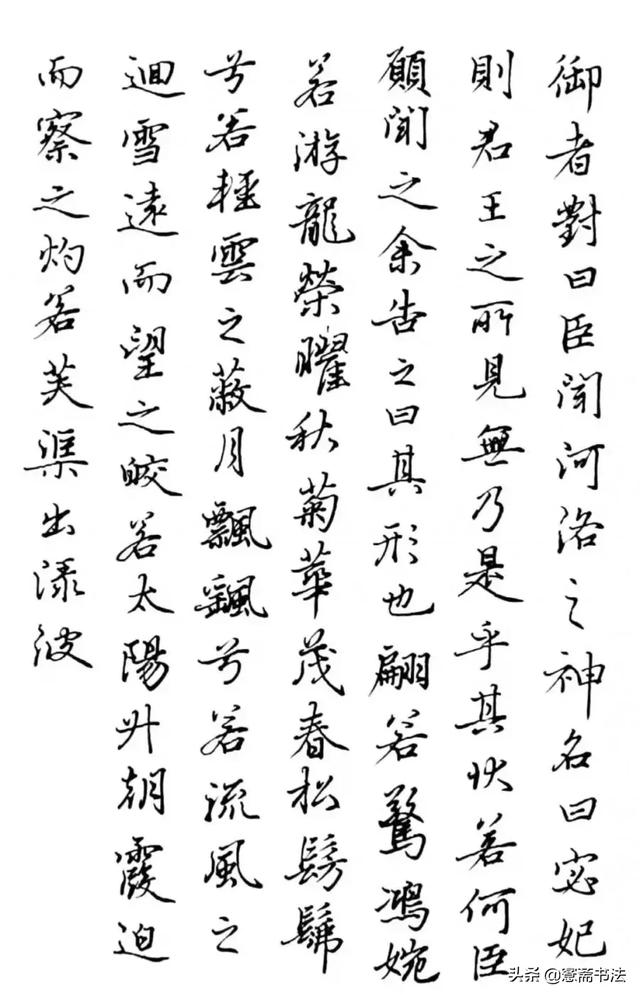 御者對曰臣聞河洛之神名曰宓妃
則君王之所見無乃是乎其狀若何臣
願聞之余告之曰其形也翩若驚鴻婉
若游龍榮曜秋菊華茂春松髣髴
兮若輕雲之蔽月飄飖兮若流風之
迴雪遠而望之皎若太陽升朝霞迫
而察之灼若芙渠出淥波
头条 @斋书法